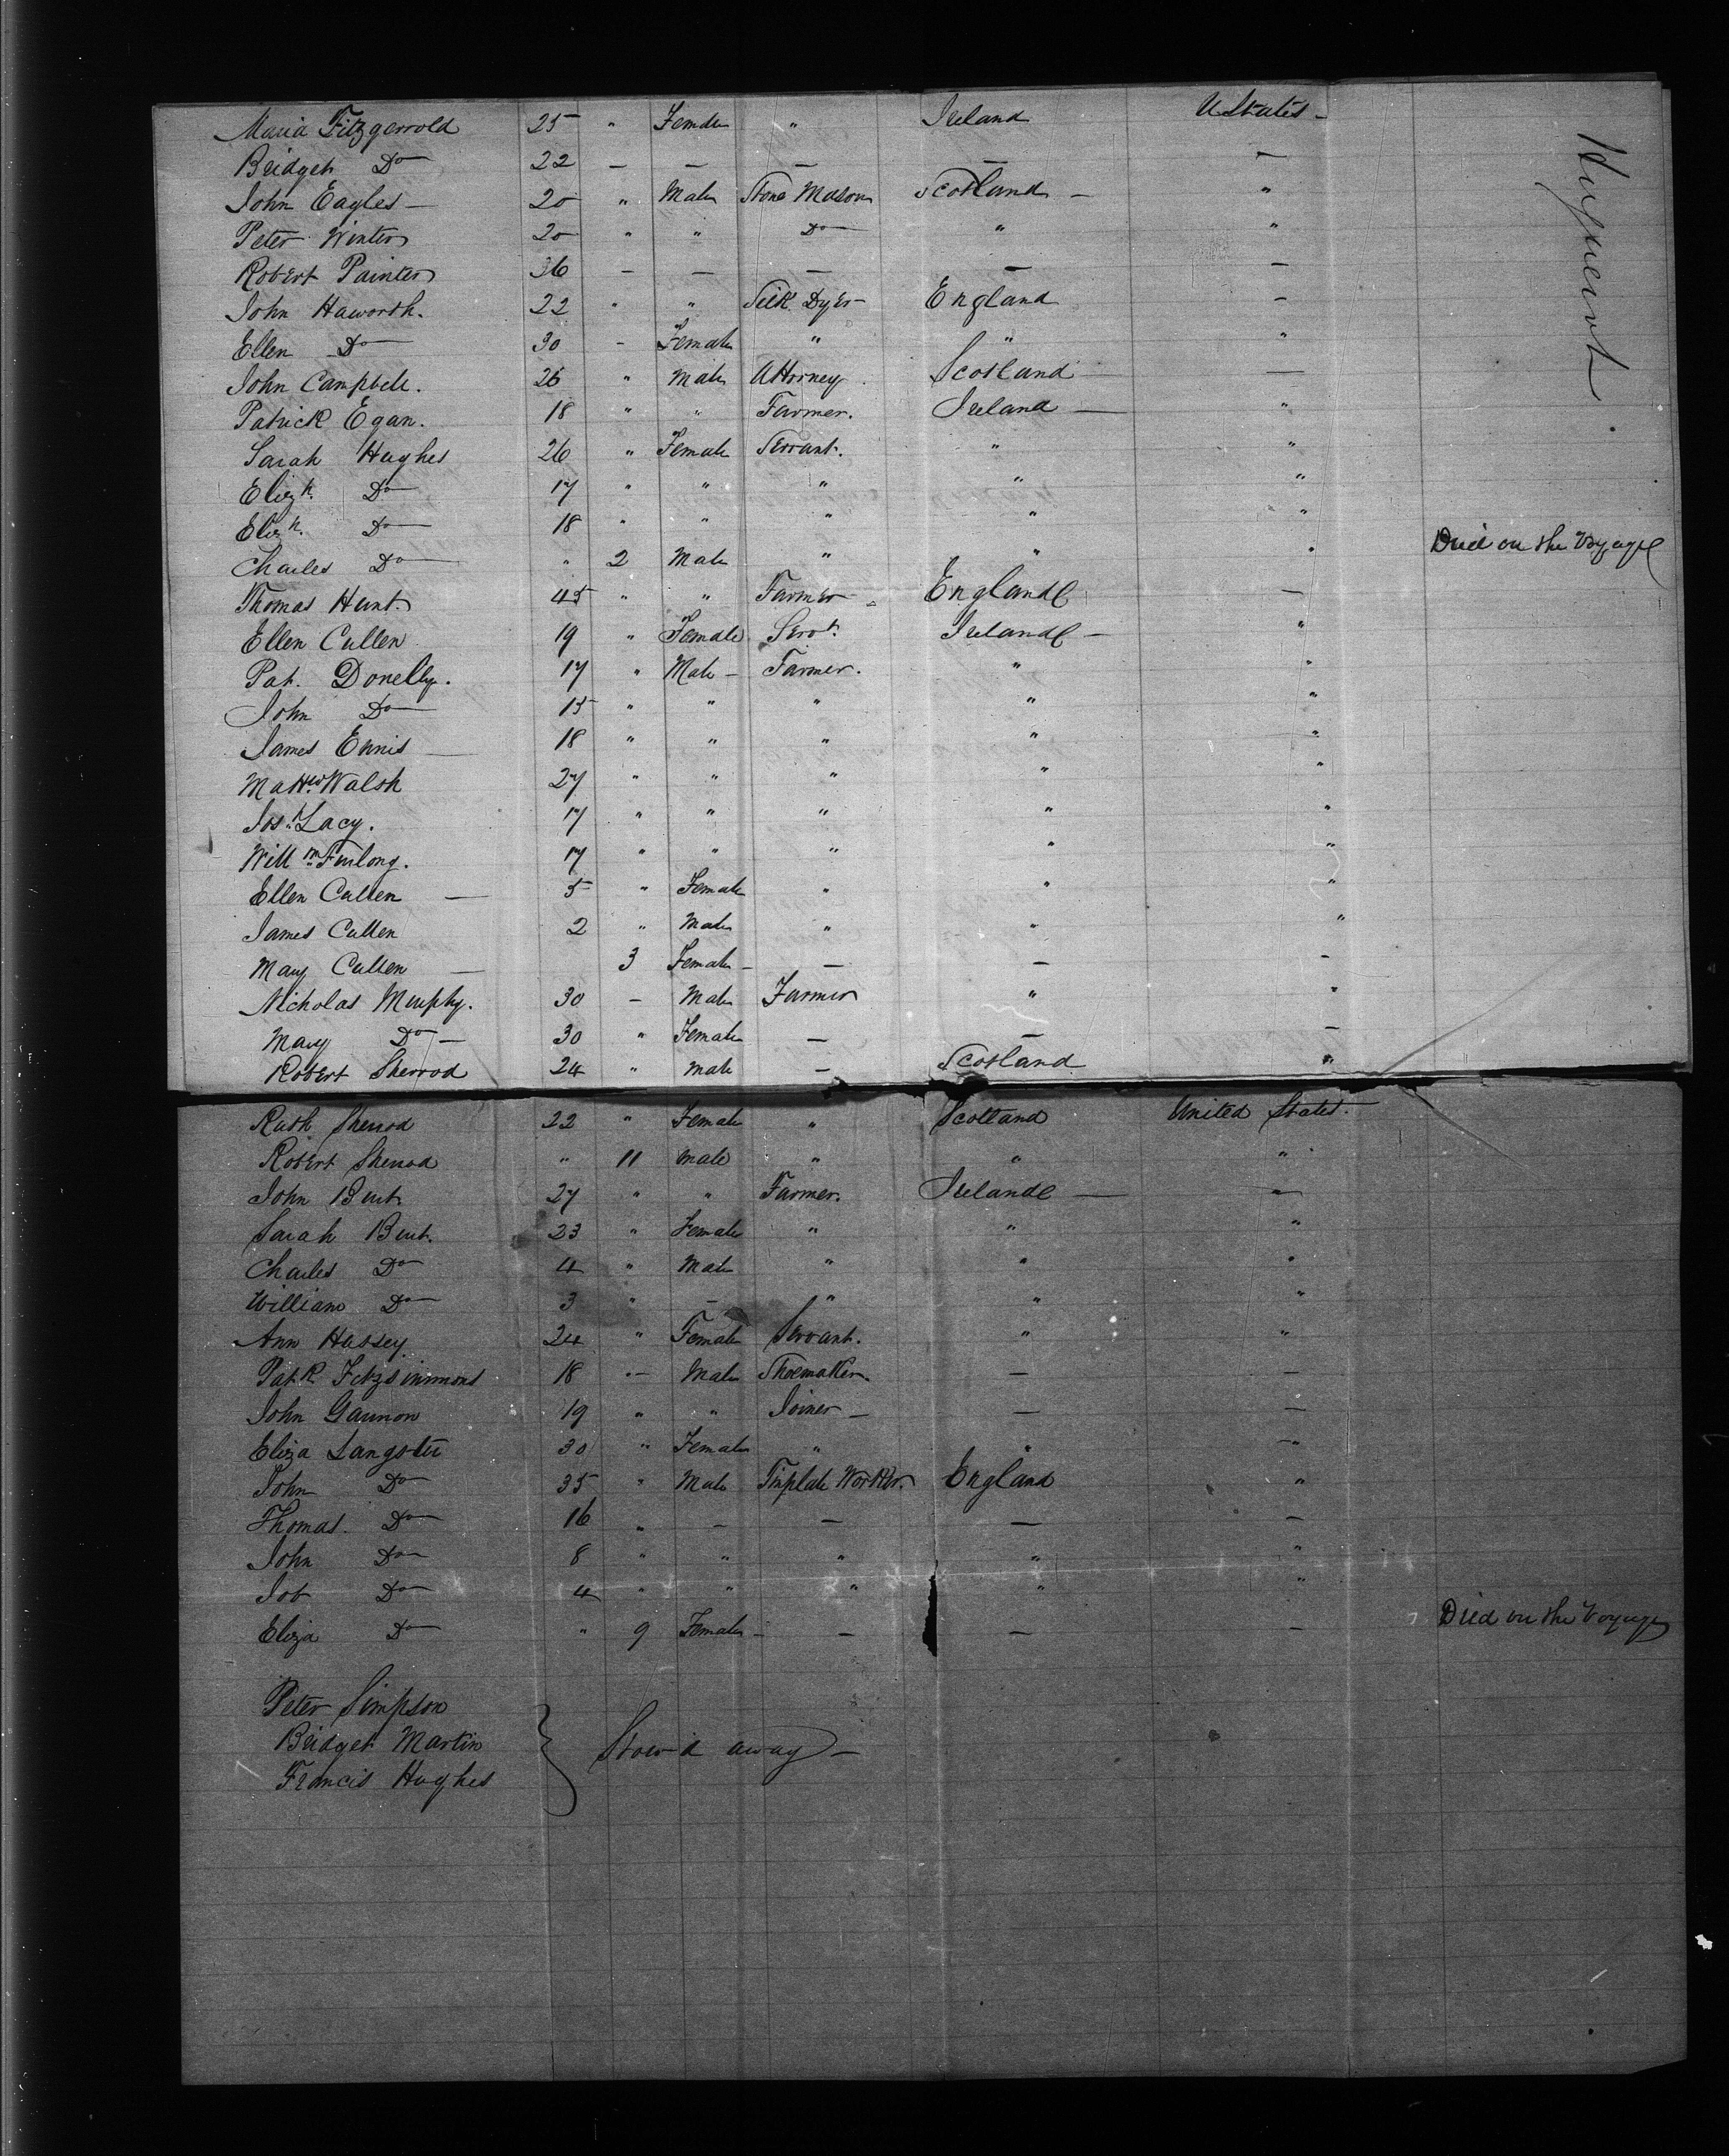 Maria Fitzgerrold 25 " Female " Ireland U States -
Bridget Do 22 — — — — —
John Eagles — 20 " Male Stone Mason Scotland — "
Peter Winter 20 " " Do " "
Robert Painter 36 — — — — —
John Haworth. 22 " " Silk Dyer England —
Ellen Do 30 - Female " " "
John Campbell. 26 " Male Attorney Scotland —
Patrick Egan. 18 " " Farmer. Ireland — "
Sarah Hughes 26 " Female Servant. " "
Elizh. Do 17 " " " " "
Elizh. Do 18 " " " " "
Charles Do " 2 Male " " " Died on the Voyage
Thomas Hunt. 45 " " Farmer England —
Ellen Cullen 19 " Female Servt. Ireland — "
Pat. Donelly. 17 " Male - Farmer. " "
John Do 15 " " " " "
James Ennis — 18 " " " " "
Mattw Walsh 27 " " " " "
Josh. Lacy. 17 " " " " "
Willm Furlong. 17 " " " " "
Ellen Cullen — 5 " Female " " "
James Cullen 2 " Male " " "
Mary Cullen — 3 Female - — — -
Nicholas Murphy. 30 - Male Farmer " "
Mary Do - 30 " Female — — —
Robert Sherrod 24 " male — Scotland "
Huguenot
Ruth Sherrod 22 " Female " Scotland United States.
Robert Sherrod " 11 male " " "
John Bent 27 " " Farmer. Ireland — "
Sarah Bent. 23 " Female " " "
Charles Do 4 " Male " " "
William Do 3 " — " " "
Ann Hussey 24 " Female Servant. " "
Patk Fitzsimmons 18 " - Male Shoemaker. — —
John Gannon 19 " " Joiner — — —
Eliza Langster 30 " Female " " "
John Do 35 " Male Tinplate Worker. England "
Thomas. Do 16 " — — — —
John Do 8 " " " " "
Job Do 4 " " " " "
Eliza Do " 9 Female - — — — Died on the Voyage
Peter Simpson
Bridget Martin } Stow'd away —
Francis Hughes